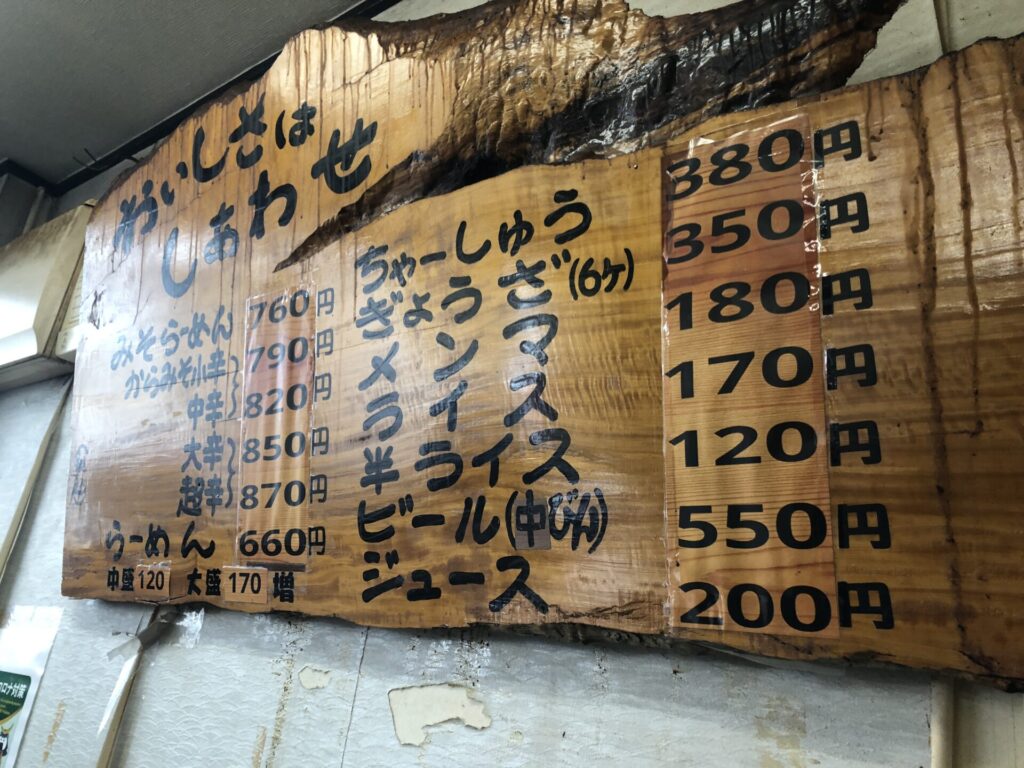 おいしさは
しあわせ
みそらーめん 760円
からみそ小辛 790円
中辛 820
大辛 850円
超辛 870円
らーめん 660円
中盛120 大盛170増
ちゃーしゅう 380円
ぎょうざ(6ヶ) 350円
メンマ 180円
ライス 170円
半ライス 120円
ビール(中びん) 550円
ジュース 200円
コロナ対策